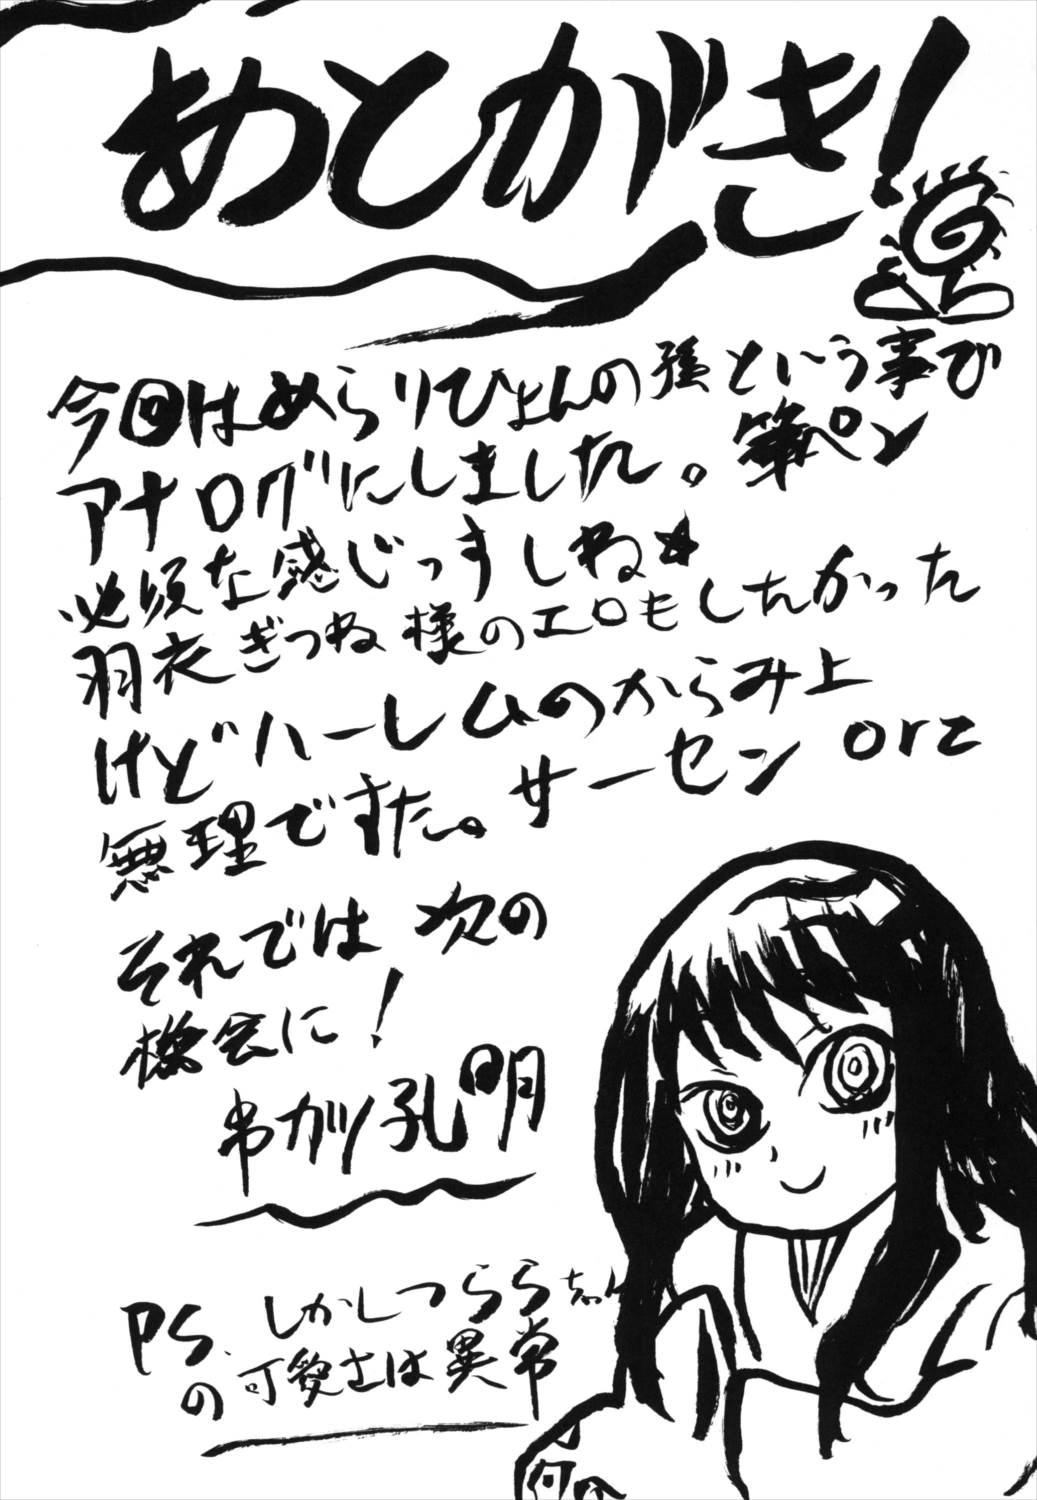 あとがき!
今回はぬらりひょんの孫という事で
アナログにしました。筆ペン
必須な感じっすしね★
羽衣ぎつね様のエロもしたかった
けどハーレムのからみ上
無理ですた。サーセン orz
それでは 次の
機会に!
串カツ孔明
PS. しかしつららちゃん
の可愛さは異常